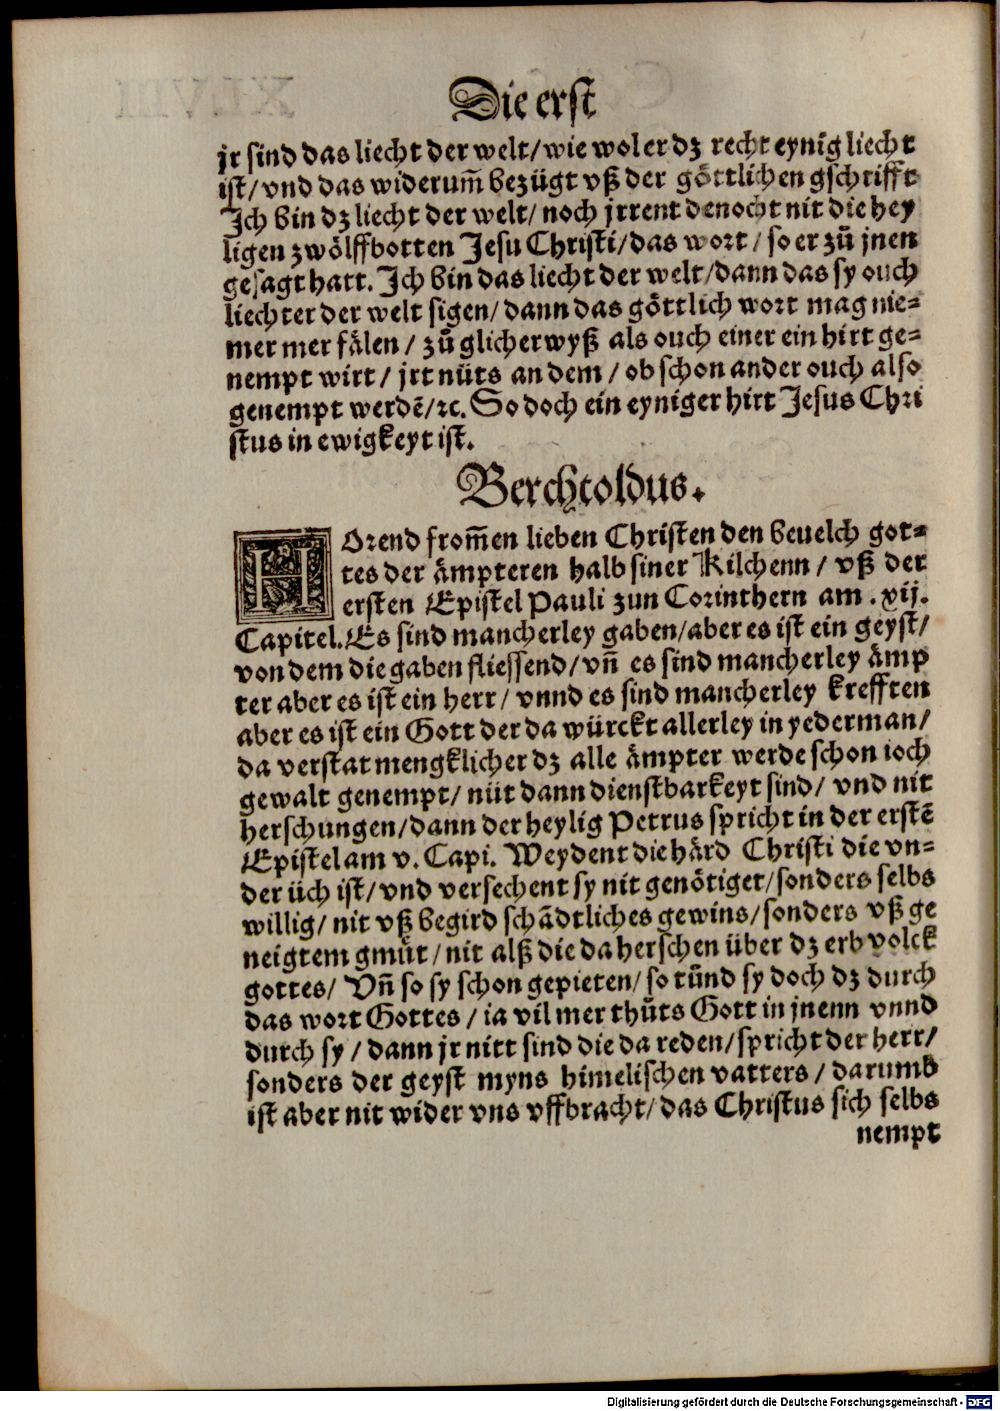 Die erst
jr sind das liecht der welt/ wie wol er dz recht eynig liecht
ist/ vnd das widerum̄ bezügt vß der göttlichen gschrifft
Ich bin dz liecht der welt/ noch jrrent denocht nit die hey
ligen zwölffbotten Jesu Christi/ das wort/ so er zů jnen
gesagt hatt. Ich bin das liecht der welt/ dann das sy ouch
liechter der welt sigen/ dann das göttlich wort mag nie-
mer mer fälen/ zů glicher wyß als ouch einer ein hirt ge-
nempt wirt/ jrt nüts an dem/ ob schon ander ouch also
genempt werdē/ ꝛc. So doch ein eyniger hirt Jesus Chri
stus in ewigkeyt ist.
Berchtoldus.
HOrend from̄en lieben Christen den beuelch got-
tes der ämpteren halb siner Kilchenn/ vß der
ersten Epistel Pauli zun Corinthern am .xij.
Capitel. Es sind mancherley gaben/ aber es ist ein geyst/
von dem die gaben fliessend/ vn̄ es sind mancherley ämp
ter aber es ist ein herr/ vnnd es sind mancherley krefften
aber es ist ein Gott der da würckt allerley in yederman/
da verstat mengklicher dz alle ämpter werde schon ioch
gewalt genempt/ nüt dann dienstbarkeyt sind/ vnd nit
herschungen/ dann der heylig Petrus spricht in der erstē
Epistel am v. Capi. Weydent die härd Christi die vn-
der üch ist/ vnd versechent sy nit genötiget/ sonders selbs
willig/ nit vß begird schädtliches gewins/ sonders vß ge
neigtem gmüt/ nit alß die da herschen über dz erb volck
gottes/ Vn̄ so sy schon gepieten/ so tůnd sy doch dz durch
das wort Gottes/ ia vil mer thůts Gott in jnenn vnnd
durch sy/ dann jr nitt sind die da reden/ spricht der herr/
sonders der geyst myns himelischen vatters/ darumb
ist aber nit wider vns vffbracht/ das Christus sich selbs
nempt
Digitalisierung gefördert durch die Deutsche Forschungsgemeinschaft - DFG